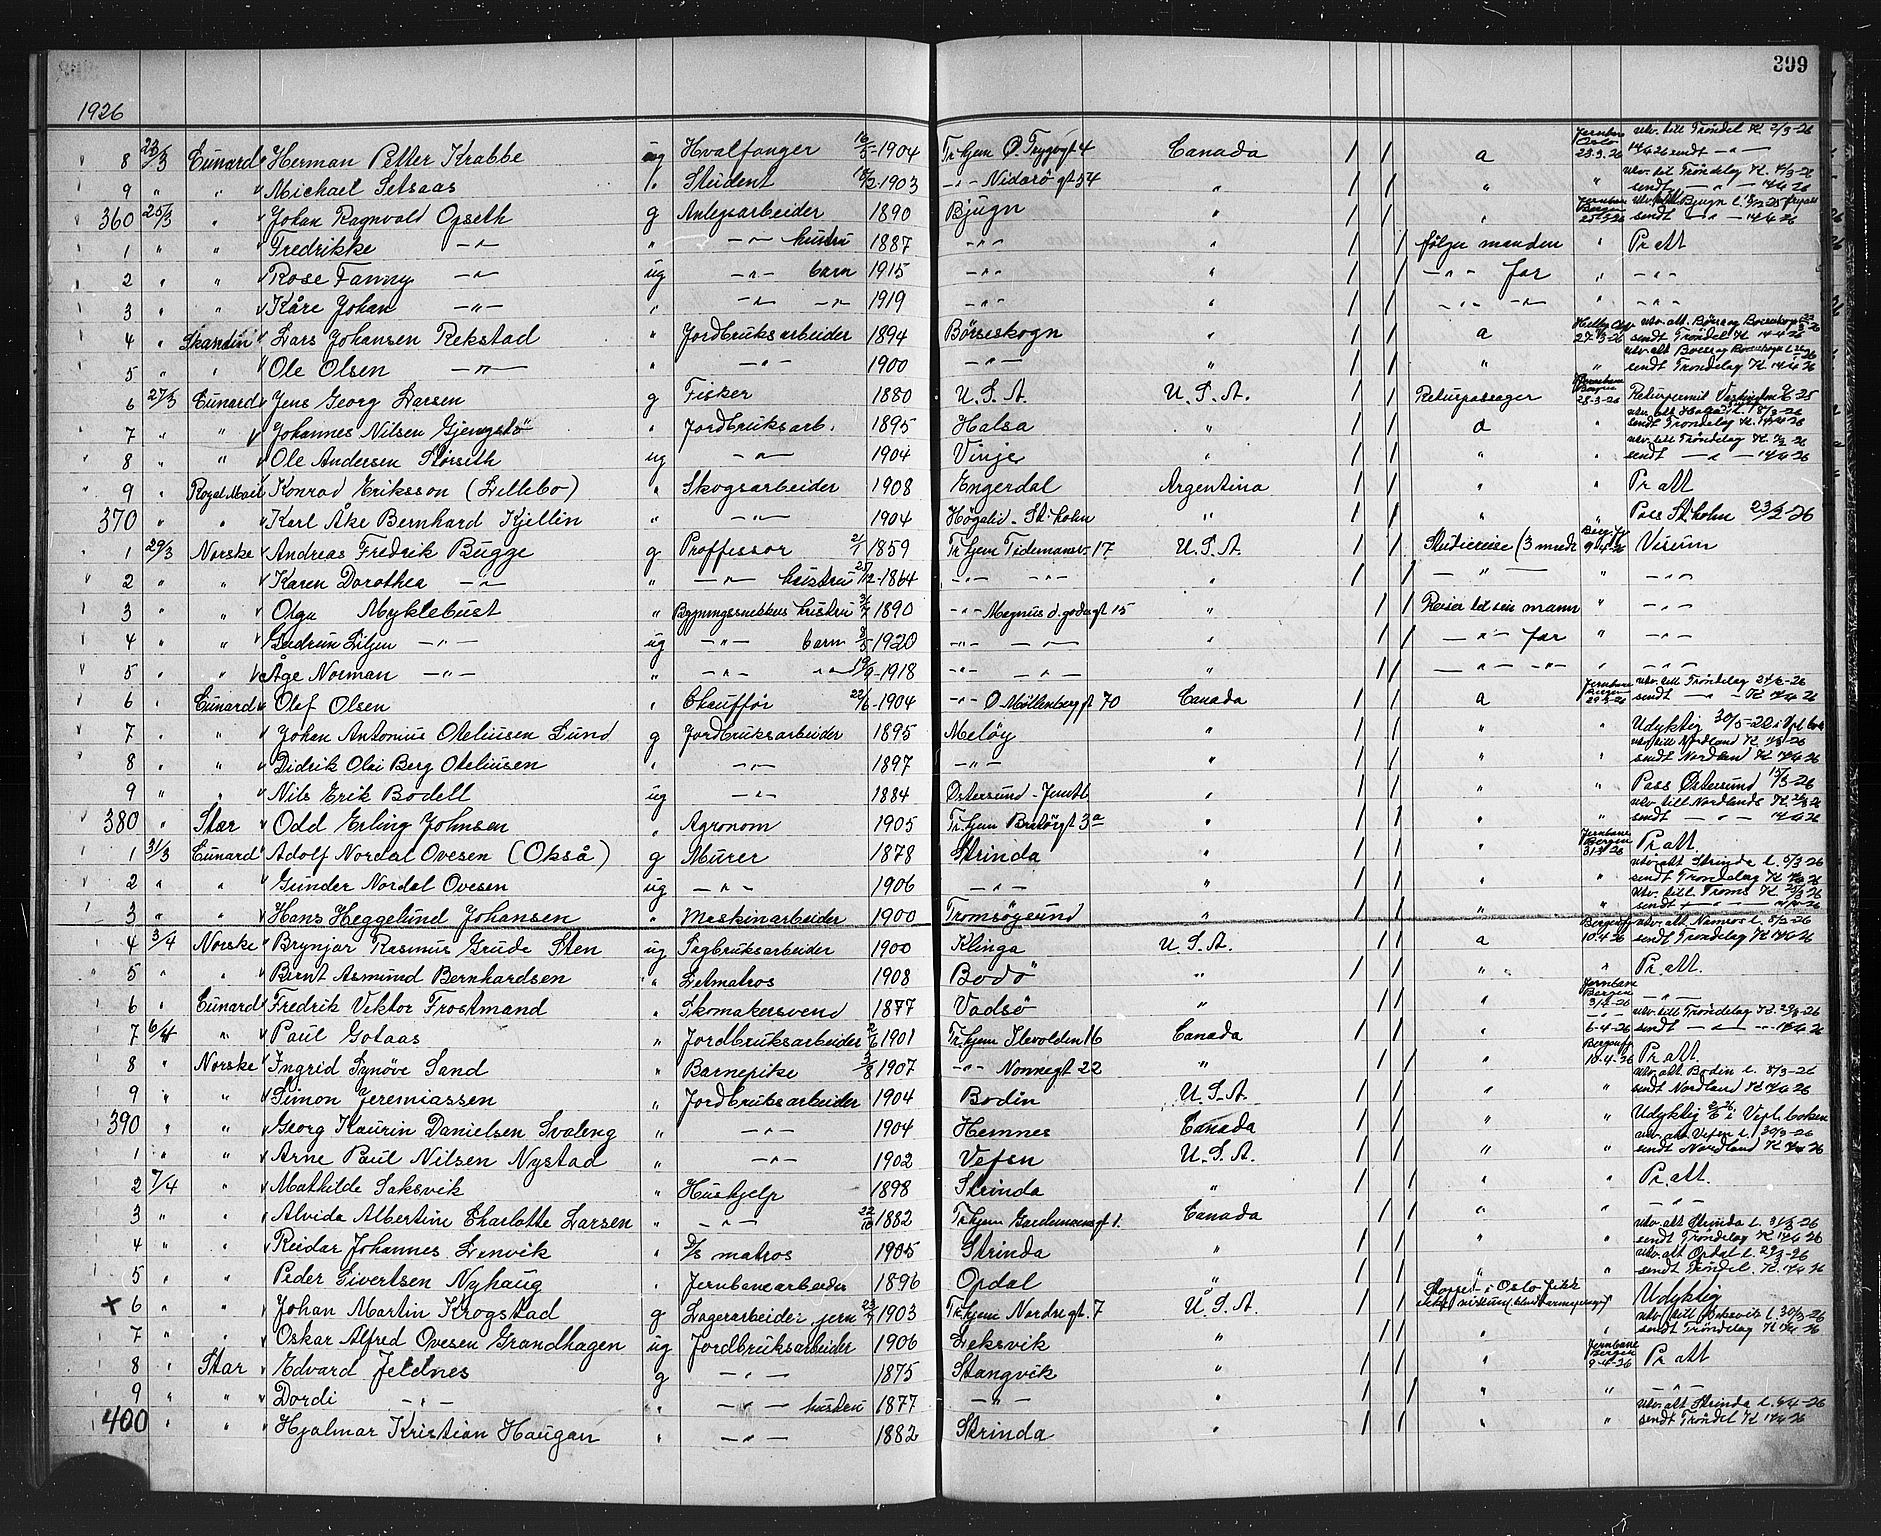 399
1926
8 23/3 Cunard Herman Petter Krabbe ug Hvalfanger 16/5-1904 Tr.hjem Ø. Trygvgt 4 Canada / / a Jernban Oslo 23.3.26 utv. till Tröndel K. 2/3-26 14/4 26 sendt -"-
9 " " Michael Setsaas " Student 1903 -"- Nidarö gt 54 " / / " " utv. til Tröndelag K. 17/3-26 sendt -"- 14/4 26
360 25/3 " Johan Ragnvald Opseth g Anlegsarbeider 1890 Bjugn " / / " Jernban Bergen 25.3.26 sendt -"- 14/4 26
1 " " Fredrikke -"- " -"- hustru 1887 -"- " / / følger manden " Pr att
2 " " Rose Fanny -"- ug -"- barn 1915 -"- " / / -"- far " -"-
3 " " Kåre Johan -"- " -"- -"- 1919 -"- " / / -"- -"- " -"-
4 " Skandin Lars Johansen Rekstad " Jordbruksarbeider 1894 Börseskogn " / / a 27/3-26 sendt Tröndel K 14/4 26
5 " " Ole Olsen -"- " -"- 1900 -"- " / / " " sendt Tröndelag K. 14/4 26
6 27/3 Cunard Jens Georg Larsen g Fisker 1880 U.S.A. U.S.A. / / Returpassager 28-3-26 Returpermit
7 " " Johannes Nilsen Gjengstö " Jordbruksarb. 1895 Halsa " / / a " sendt Tröndelag K. 14/4 26
8 " " Ole Andersen Störseth ug -"- 1904 Vinje " / / " " utv. till Tröndelag K. sendt -"- 14/4 26
9 " Royal Mail Konrad Eriksson (Lillebo) " Skogsarbeider 1908 Engerdal Argentina / / " " Pr att
370 " " Karl Åke Bernhard Kjellin " -"- 1904 Högalid - St.holm " / / " " Pass St.holm 23/2-26
1 29/3 Norske Andreas Fredrik Bugge g Proffessor 2/1 1859 Tr.hjem Tidemansv. 17 U.S.A. / / Studiereise (3 mndr Visum
2 " " Karen Dorothea -"- " -"- hustru 1864 -"- -"- " / / -"- " -"-
3 " " Olga Myklebust " hustru 1890 -"- Magnus d. godesgt 15 " / / Reiser til sin mann " -"-
4 " " Gudrun Liljen -"- ug -"- barn 8/5-1920 -"- -"- " / / -"- far " -"-
5 " " Åge Norman -"- " -"- -"- 1918 -"- -"- " / / -"- -"- " -"-
6 " Cunard Olaf Olsen " Chaufför 22/6-1904 -"- Ö. Möllenberggt 70 Canada / / a utv. till Tröndelag sendt -"- K 14/4 26
7 " " Johan Antonius Oteliusen Lund g Jordbruksarbeider 1895 Melöy " / / " " Udyktig utv. till Nordland K.
8 " " Didrik Olai Berg Oteliusen " -"- 1897 -"- " / / " " sendt Nordland K 14/4 26
9 " " Nils Erik Bodell ug -"- 1884 Östersund - Jemtl " / / " " Pass Östersund 15/3-26
380 " Star Odd Erling Johnsen " Agronom 1905 Tr.hjem Bratörgt 3a " / / " " utv. till Nordlands K. sendt -"- 14/4 26
1 31/3 Cunard Adolf Nordal Ovesen (Okså) g Murer 1878 Strinda " / / " Jernbane Bergen Pr att.
2 " " Gunder Nordal Ovesen ug -"- 1906 -"- " / / " " utv. att Strinda l. 5/3-26 sendt Tröndelag K
3 " " Hans Heggelund Johansen " Maskinarbeider 1900 Tromsöysund " / / " " utv. till Troms K.
4 3/4 Norske Brynjar Rasmus Grude Sten ug Sagbruksarbeider 1900 Klinga U.S.A. / / a 10.4.26 utv. att Namsos l. 8/3-26 sendt Tröndelag K 14/4 26
5 " " Bernt Asmund Bernhardsen " Letmatros 1908 Bodö " / / " " Pr. att.
6 " Cunard Fredrik Viktor Frostmand " Skomakersvend 1877 Vadsö " / / " Jernbane Bergen -"-
7 6/4 " Paul Gotaas " Jordbruksarbeider 2/6 1901 Tr.hjem Ilevolden 16 Canada / / " 6-4-26 utv. till Tröndelag K. 29/3-26 sendt -"-
8 " Norske Ingrid Synöve Sand " Barnepike 3/8 1907 -"- Nonnegt 22 " / / " 10.4-26 Pr att.
9 " " Simon Jeremiassen " Jordbruksarbeider 1904 Bodin U.S.A. / / " " utv. att Bodin l. 8/3-26 sendt Nordland K 14/4 26
390 " " Georg Kaurin Danielsen Svaleng " -"- 1904 Hemnes Canada / / " " Udyktig i Vpl. boken
1 " " Arne Paul Nilsen Nystad " -"- 1902 Vefsn U.S.A. / / " " utv. att Vefsn l. 30/3-26 sendt Nordland K 14/4 26
2 7/4 " Mathilde Saksvik " Hushjelp 1898 Strinda " / / " " Pr. att.
3 " " Alvida Albertine Charlotte Larsen " -"- 22/10 1882 Tr.hjem Gardemoensgt 1. Canada / / " " -"-
4 " " Reidar Johannes Lenvik " D/S matros 1905 Strinda " / / " " utv. att Strinda l. 31/3-26 sendt Tröndelag K 14/4 26
5 " " Peder Sivertsen Nyhaug " Jernbanearbeider 1896 Opdal " / / " " utv. att Opdal l. 29/3-26 sendt Tröndel. K. 14/4 26
x 6 " " Johan Martin Krogstad g Lagerarbeider jern 1903 Tr.hjem Nordregt. 7 U.S.A. / / Stoppet i Oslo fikk ikke visum Udyktig
7 " " Oskar Alfred Ovesen Grandhagen ug Jordbruksarbeider 1906 Leksvik " / / " " utv. till Leksvik l. 30/3-26 sendt Tröndelag K 14/4 26
8 " Star Edvard Jeldnes g -"- 1875 Stangvik " / / " Jernbane Bergen 9-4-26 Pr att
9 " " Dordi -"- " -"- hustru 1877 -"- " / / " " -"-
400 " " Hjalmar Kristian Haugan " -"- 1882 Strinda " / / " " utv. att Strinda l. 6/4-26 sendt Tröndel K 14/4 26